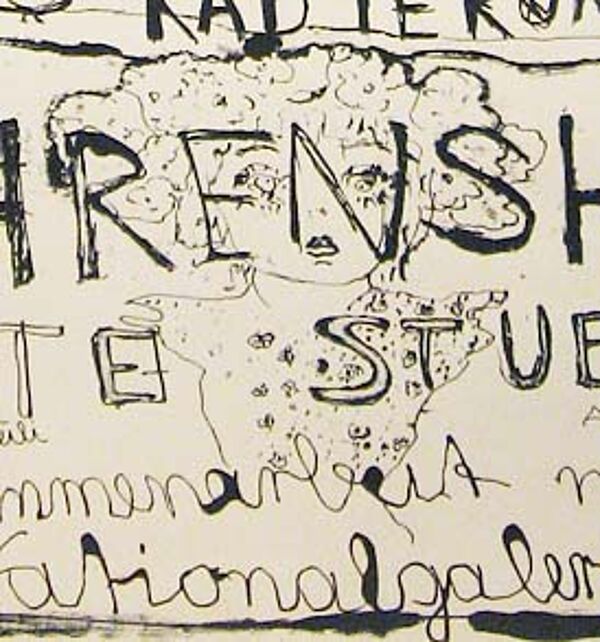 RADIERUN
HRENSH
TE STUE
mmenarbeit
ationalgaler